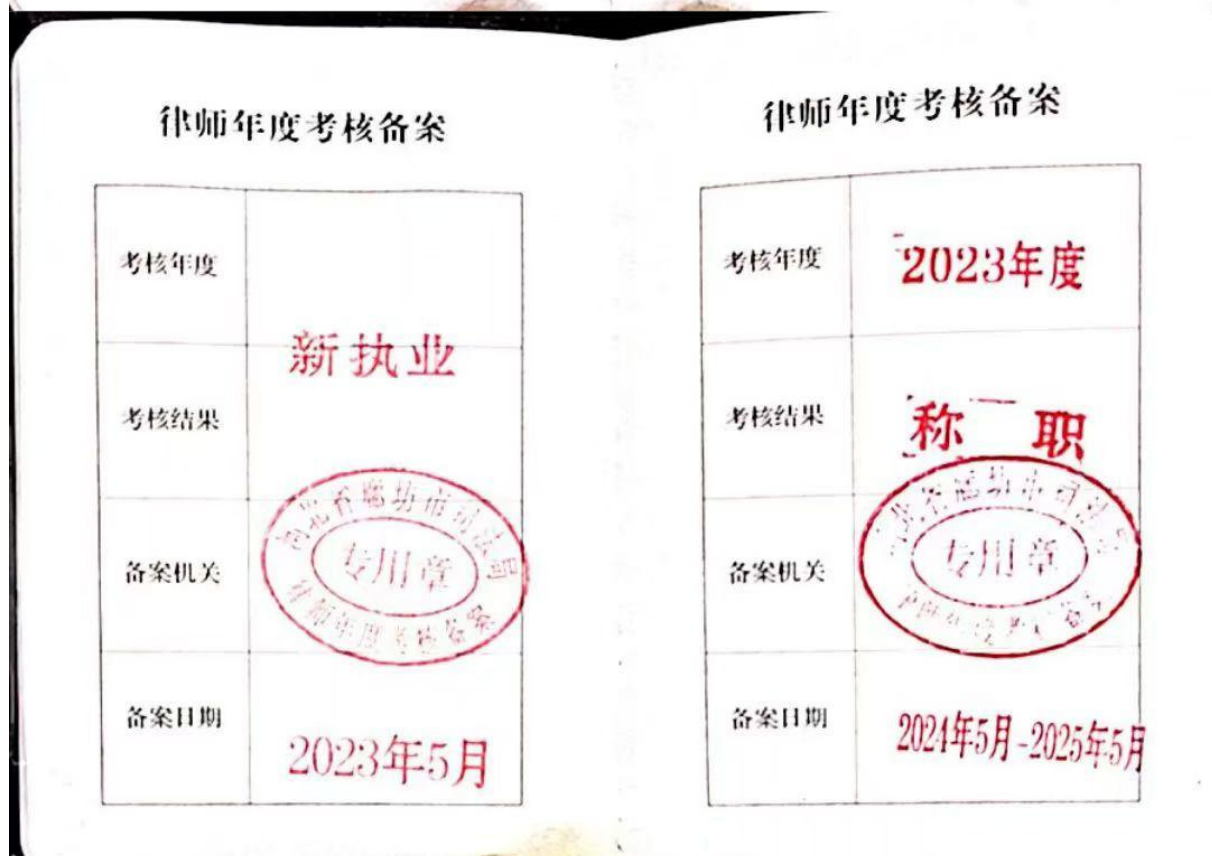 律师年度考核备案
考核年度
新执业
考核结果
备案机关
河北省廊坊市司法局
专用章
律师年度考核备案
备案日期
2023年5月
律师年度考核备案
考核年度
2023年度
考核结果
称 职
备案机关
河北省廊坊市司法局
专用章
律师年度考核备案
备案日期
2024年5月-2025年5月